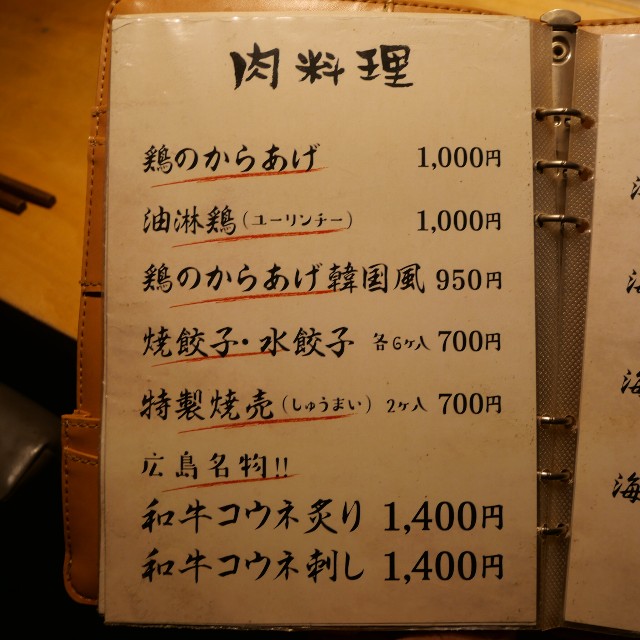 肉料理
鶏のからあげ 1,000円
油淋鶏(ユーリンチー) 1,000円
鶏のからあげ韓国風 950円
焼餃子・水餃子 各6ヶ入 700円
特製焼売(しゅうまい) 2ヶ入 700円
広島名物!!
和牛コウネ炙り 1,400円
和牛コウネ刺し 1,400円
海
海